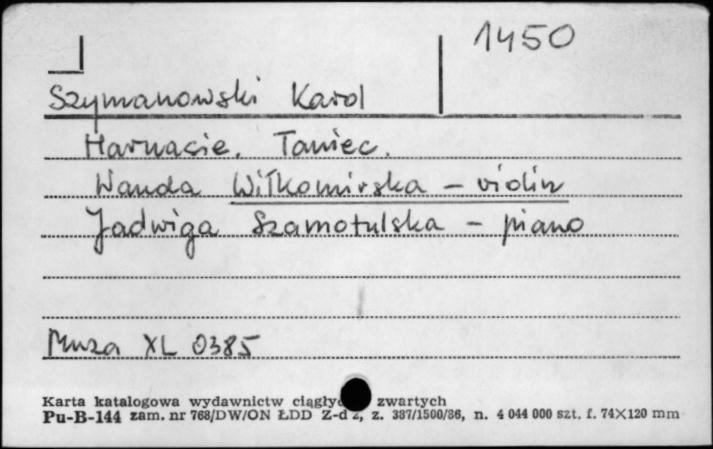 1450
Szymanowski Karol
Harnasie. Taniec.
Wanda Wiłkomirska – violin
Jadwiga Szamotulska – piano
Muza XL 0385
Karta katalogowa wydawnictw ciągły zwartych
Pu-B-144 zam. nr 768/DW/ON ŁDD Z-d 2, z. 387/1500/86, n. 4 044 000 szt. f. 74×120 mm